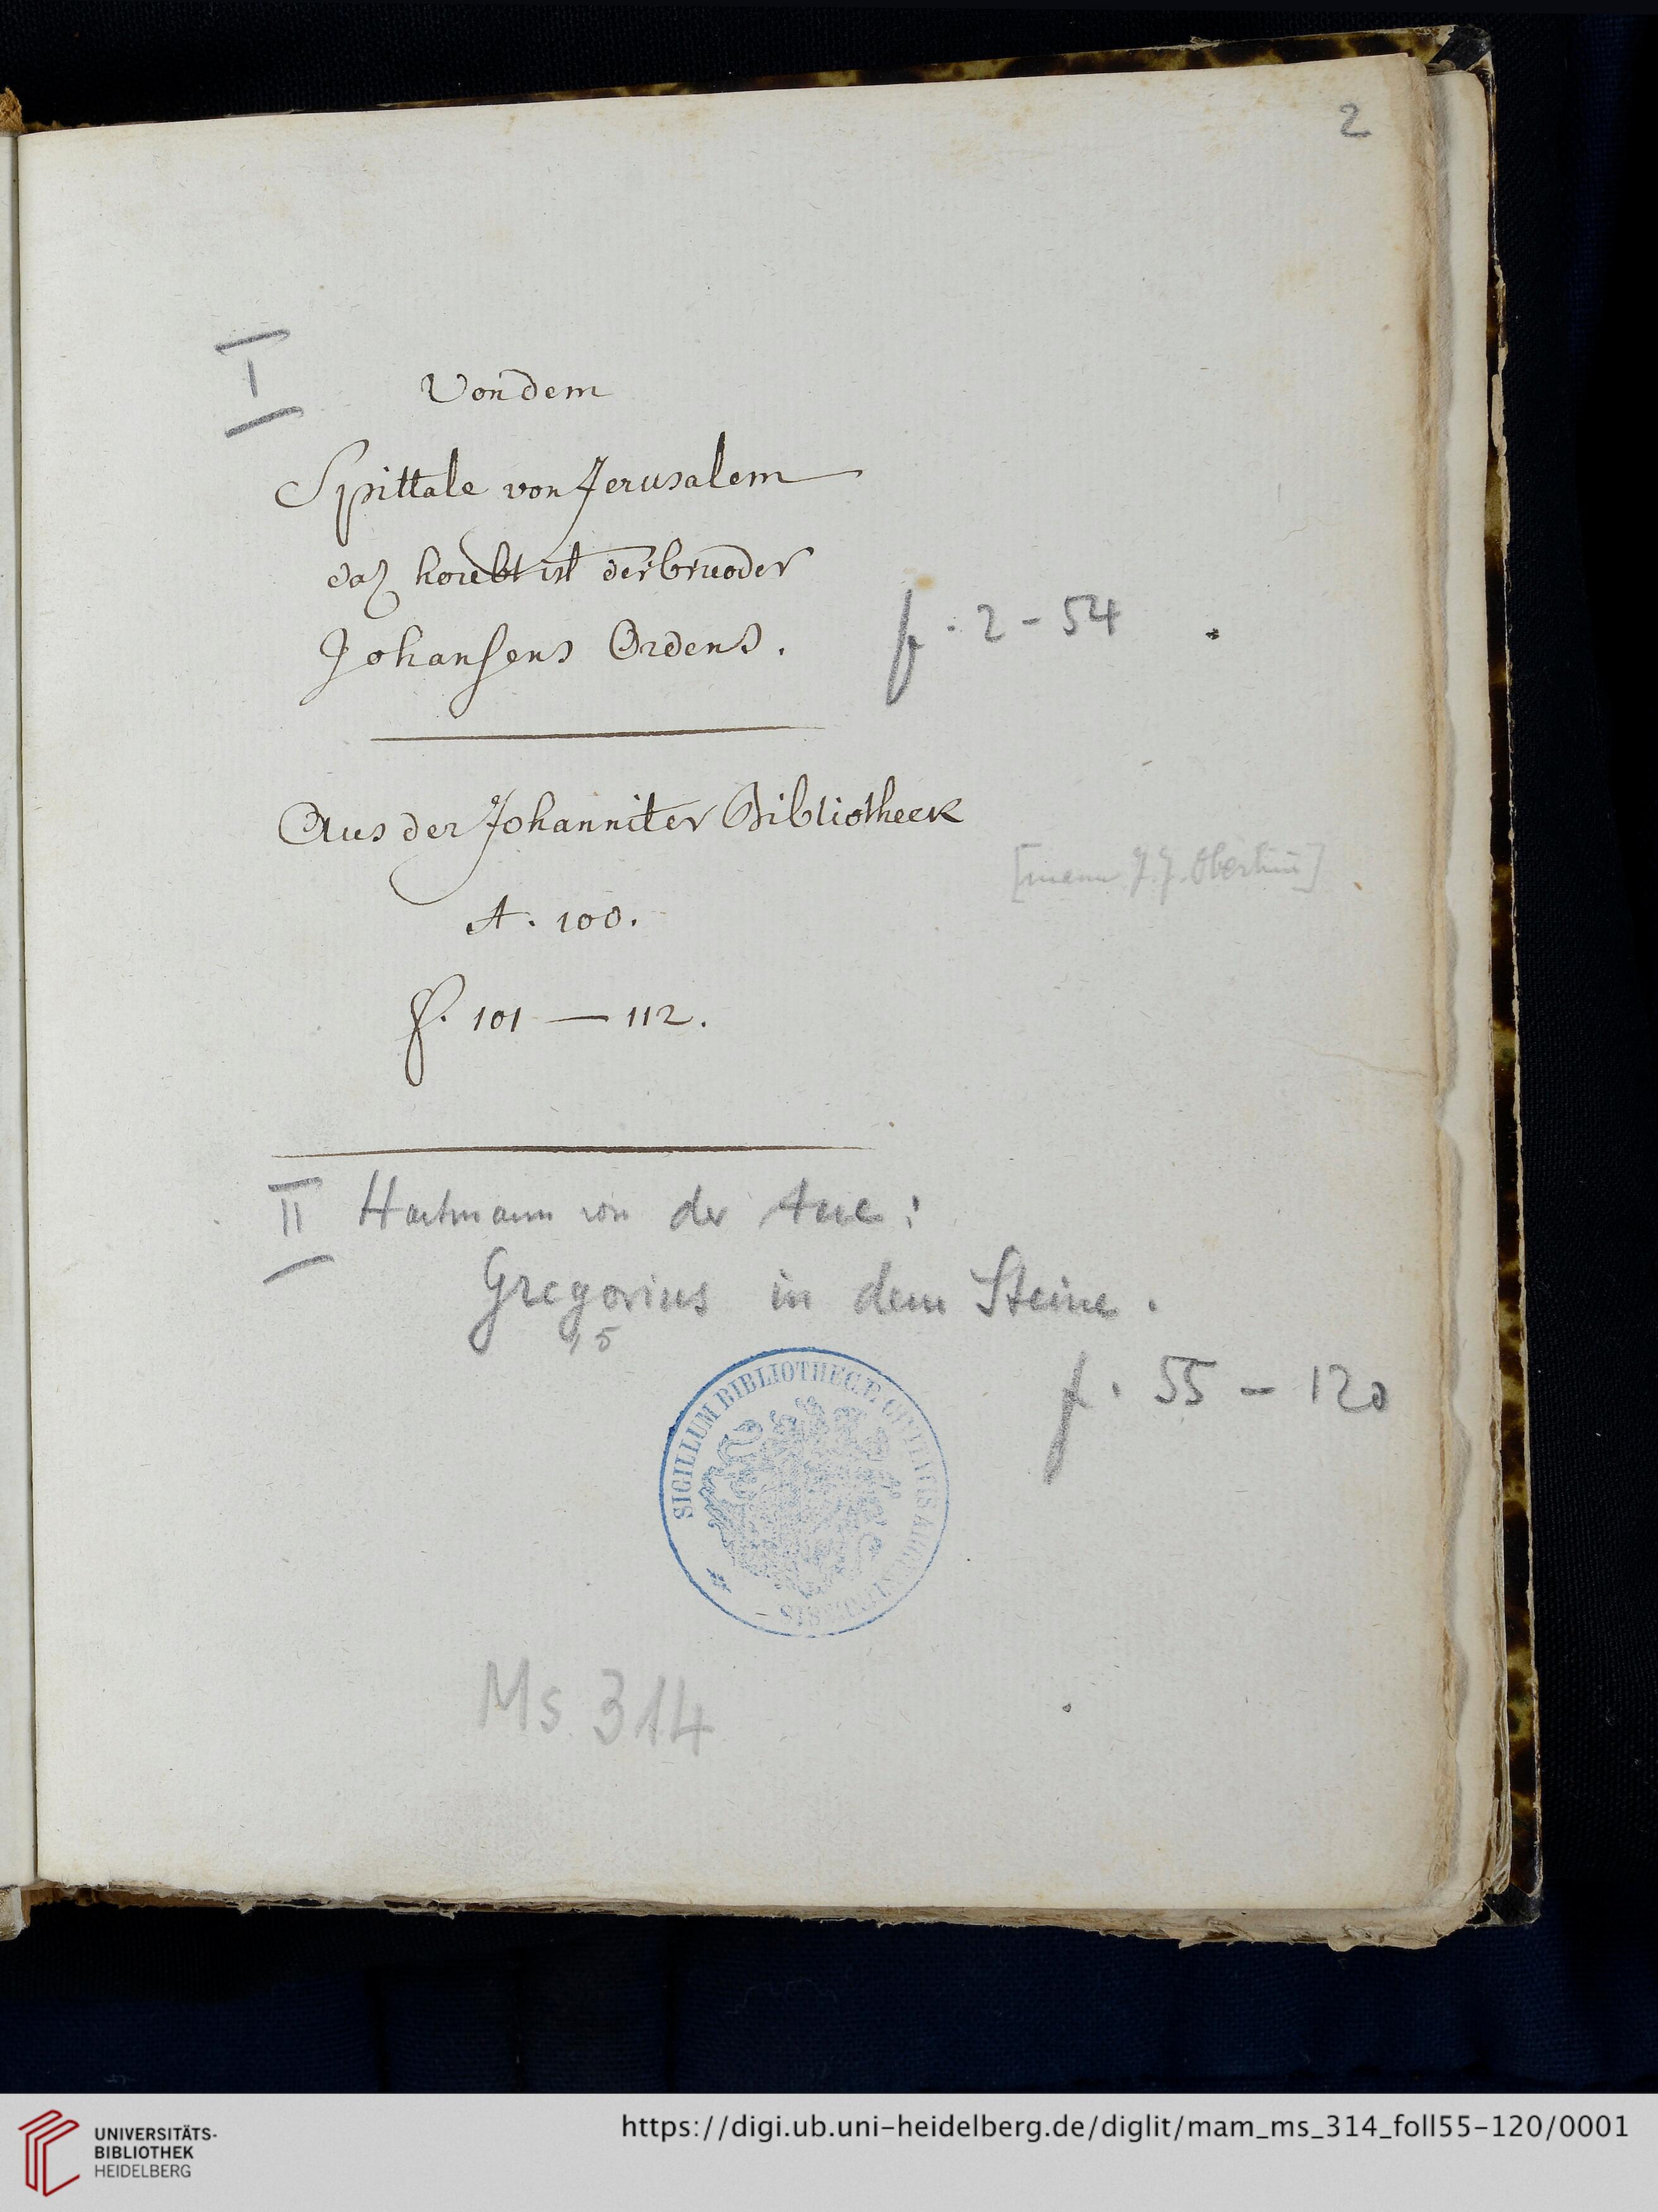 2
I
Von dem
Spittale von Jerusalem
daz houbt ist der brueder
Johansens Ordens.
f. 2 - 54
Aus der Johanniter Bibliotheck
[manu J. J. Oberlini]
A. 100.
f. 101 — 112.
II Hartmann von der Aue:
Gregorius in dem Steine.
15
f. 55 - 120
SIGILLUM BIBLIOTHECÆ CIVITATIS ARGENTINENSIS
Ms 314
UNIVERSITÄTS-
BIBLIOTHEK
HEIDELBERG
https://digi.ub.uni-heidelberg.de/diglit/mam_ms_314_foll55-120/0001